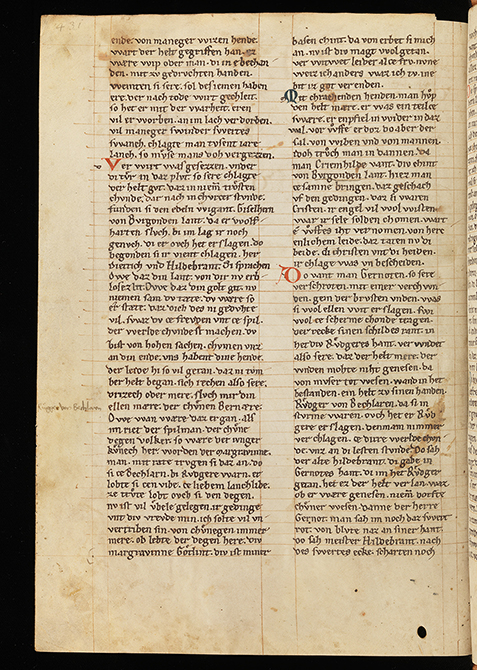 431
ende. von maneger witzen hende.
wart der helt gegriffen han. ez
wære wip oder man. di in e bechan
den. mit zv gedruchten handen.
weinten si sere. sol des iemen haben
ere. der nach tode wirt gechleit.
so het er mit der warheit. eren
vil erworben. an im lach verdorben.
vil maneger swinder swertes
swanch. chlagte man tusent iare
lanch. so mvse mans doh vergezzen.
Ver wirt was gesezzen. vnder
di tvr in daz plvt. so sere chlagte
der helt gvt. daz in niem trosten
chvnde. dar nach in chvrcer stvnde.
fvnden si den edeln wigant. Giselhern
von Bvrgonden lant. da er wolf
harten slvch. bi im lag ir noch
genvch. di er ovch het erslagen. do
begonden si ir vient chlagen. her
Dietrich vnd Hildebrant. Gi sprachen
Owe daz din lant. von dir nv erb
losez lit. Owe daz din golt git. nv
niemen sam dv tæte. dv wære so
er stæte. daz dich des ni gedvhte
vil. swaz dv ce frevden vnt ce spil.
der werlde chvndest machen. dv
bist von hohen sachen. chomen vntz
an din ende. vns habent dine hende.
der levde hi so vil getan. daz ni tvm
ber helt began. sich rechen also sere.
vrizzech oder mere. slvch mir din
ellen mære. der chvnen Bernære.
Owe wan wære daz ergan. als
im riet der spilman. der chvne
degen Volker. so wære der ivnger
kvnech her. worden der margravinne.
man. mit ræte trvgen si daz an. do
si ce Bechlarn. bi Rvdgere warn. er
lobte si cen vibe. ce liebem lanchlibe.
ze trvte lobt ovch si den degen.
nv ist vil vbele gelegen. ir gedinge
vnt div vrevde min. ich solte vil vn
vertriben sin. von chvnegen immer
mere. ob lebte der degen here. div
margravinne Gotlint. div ist miner
basen chint. da von erbet si mich
an. nv ist div magt wol getan.
ver witwet leider alce frv. nvne
weiz ich anders waz ich tv. ine
bit ir got verenden.
Mit chrachenden henden. man hvp
den helt mære. er was ein teilce
swære. er enpfiel in wider in daz
wal. vor wffte erdoz do aber der
sal. von wiben vnd von mannen.
doch trvch man in dannen. da
man Criemhilde vant. div chint
von Bvrgonden lant. hiez man
ce samne bringen. daz geschach
vf den gedingen. daz si waren
Cristen. ir engel vil wol wisten
war ir sele solden chomen. wart
e wffes iht vernomen. von here
enlichem leide. daz taten nv di
beide. di christen vnt di heiden.
ir chlage was vnbescheiden.
Do vant man Gernoten. so sere
verschroten. mit einer verch wn
den. gein der brvsten vnden. was
si wol ellen wit erslagen. swi
wol ce scherme chonde tragen.
der recke sinen schildes rant. in
het div Rvdgeres hant. verwndet
also sere. daz der helt mære. der
wnden mohte niht genesen. da
von mvser tot wesen. want in het
bestanden. ein helt zv sinen handen.
Rvdger von Bechlaren. da si in
stvrme waren. ovch het er Rvd
gere erslagen. den man nimmer
verchlagen. ce dirre werlde chon
de. vnz an di lesten stvnde. Do sah
der alte Hildebrant. di gabe in
Gernotes hant. di im het Rvdger
getan. het er der helt verlan. wæ
ob er wære genesen. niem dorfte
chvner wesen. danne der herre
Gernot. man sah im noch daz swert
rot. von blvte naz an siner hant.
do sah meister Hildebrant. nach
des swertes ecke. scharten noch